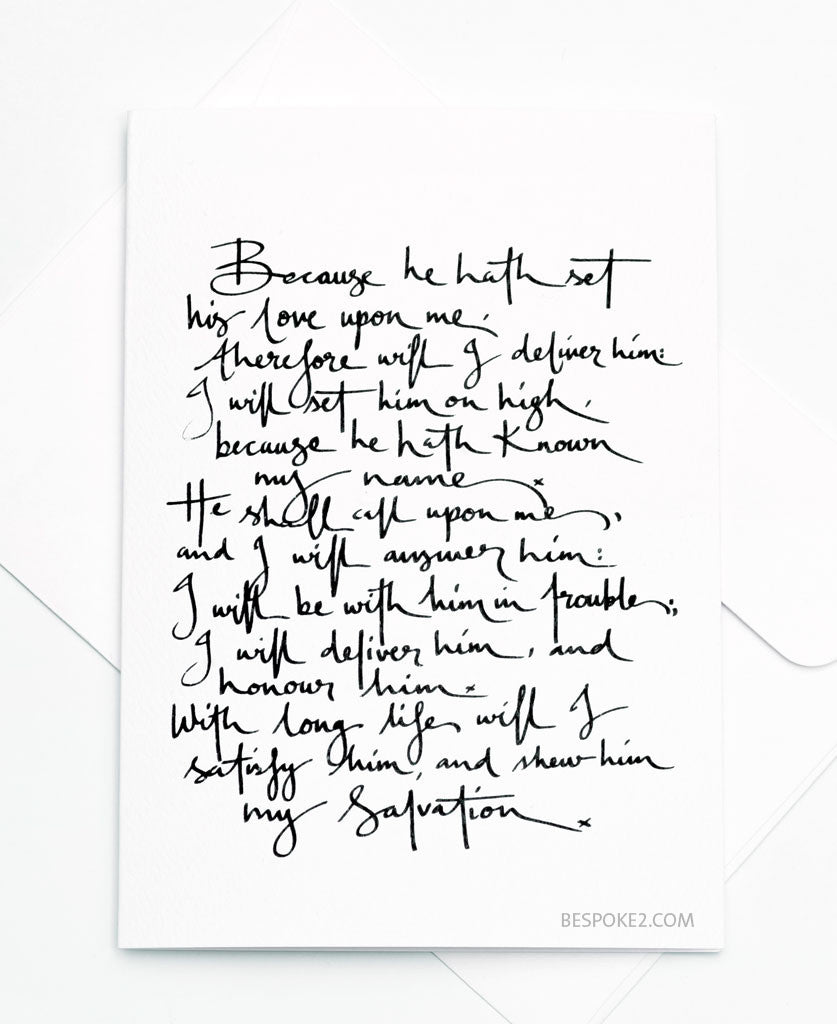 Because he hath set
his love upon me,
therefore will I deliver him:
I will set him on high,
because he hath known
my name.
He shall call upon me,
and I will answer him:
I will be with him in trouble;
I will deliver him, and
honour him.
With long life will I
satisfy him, and shew him
my Salvation.
BESPOKE2.COM